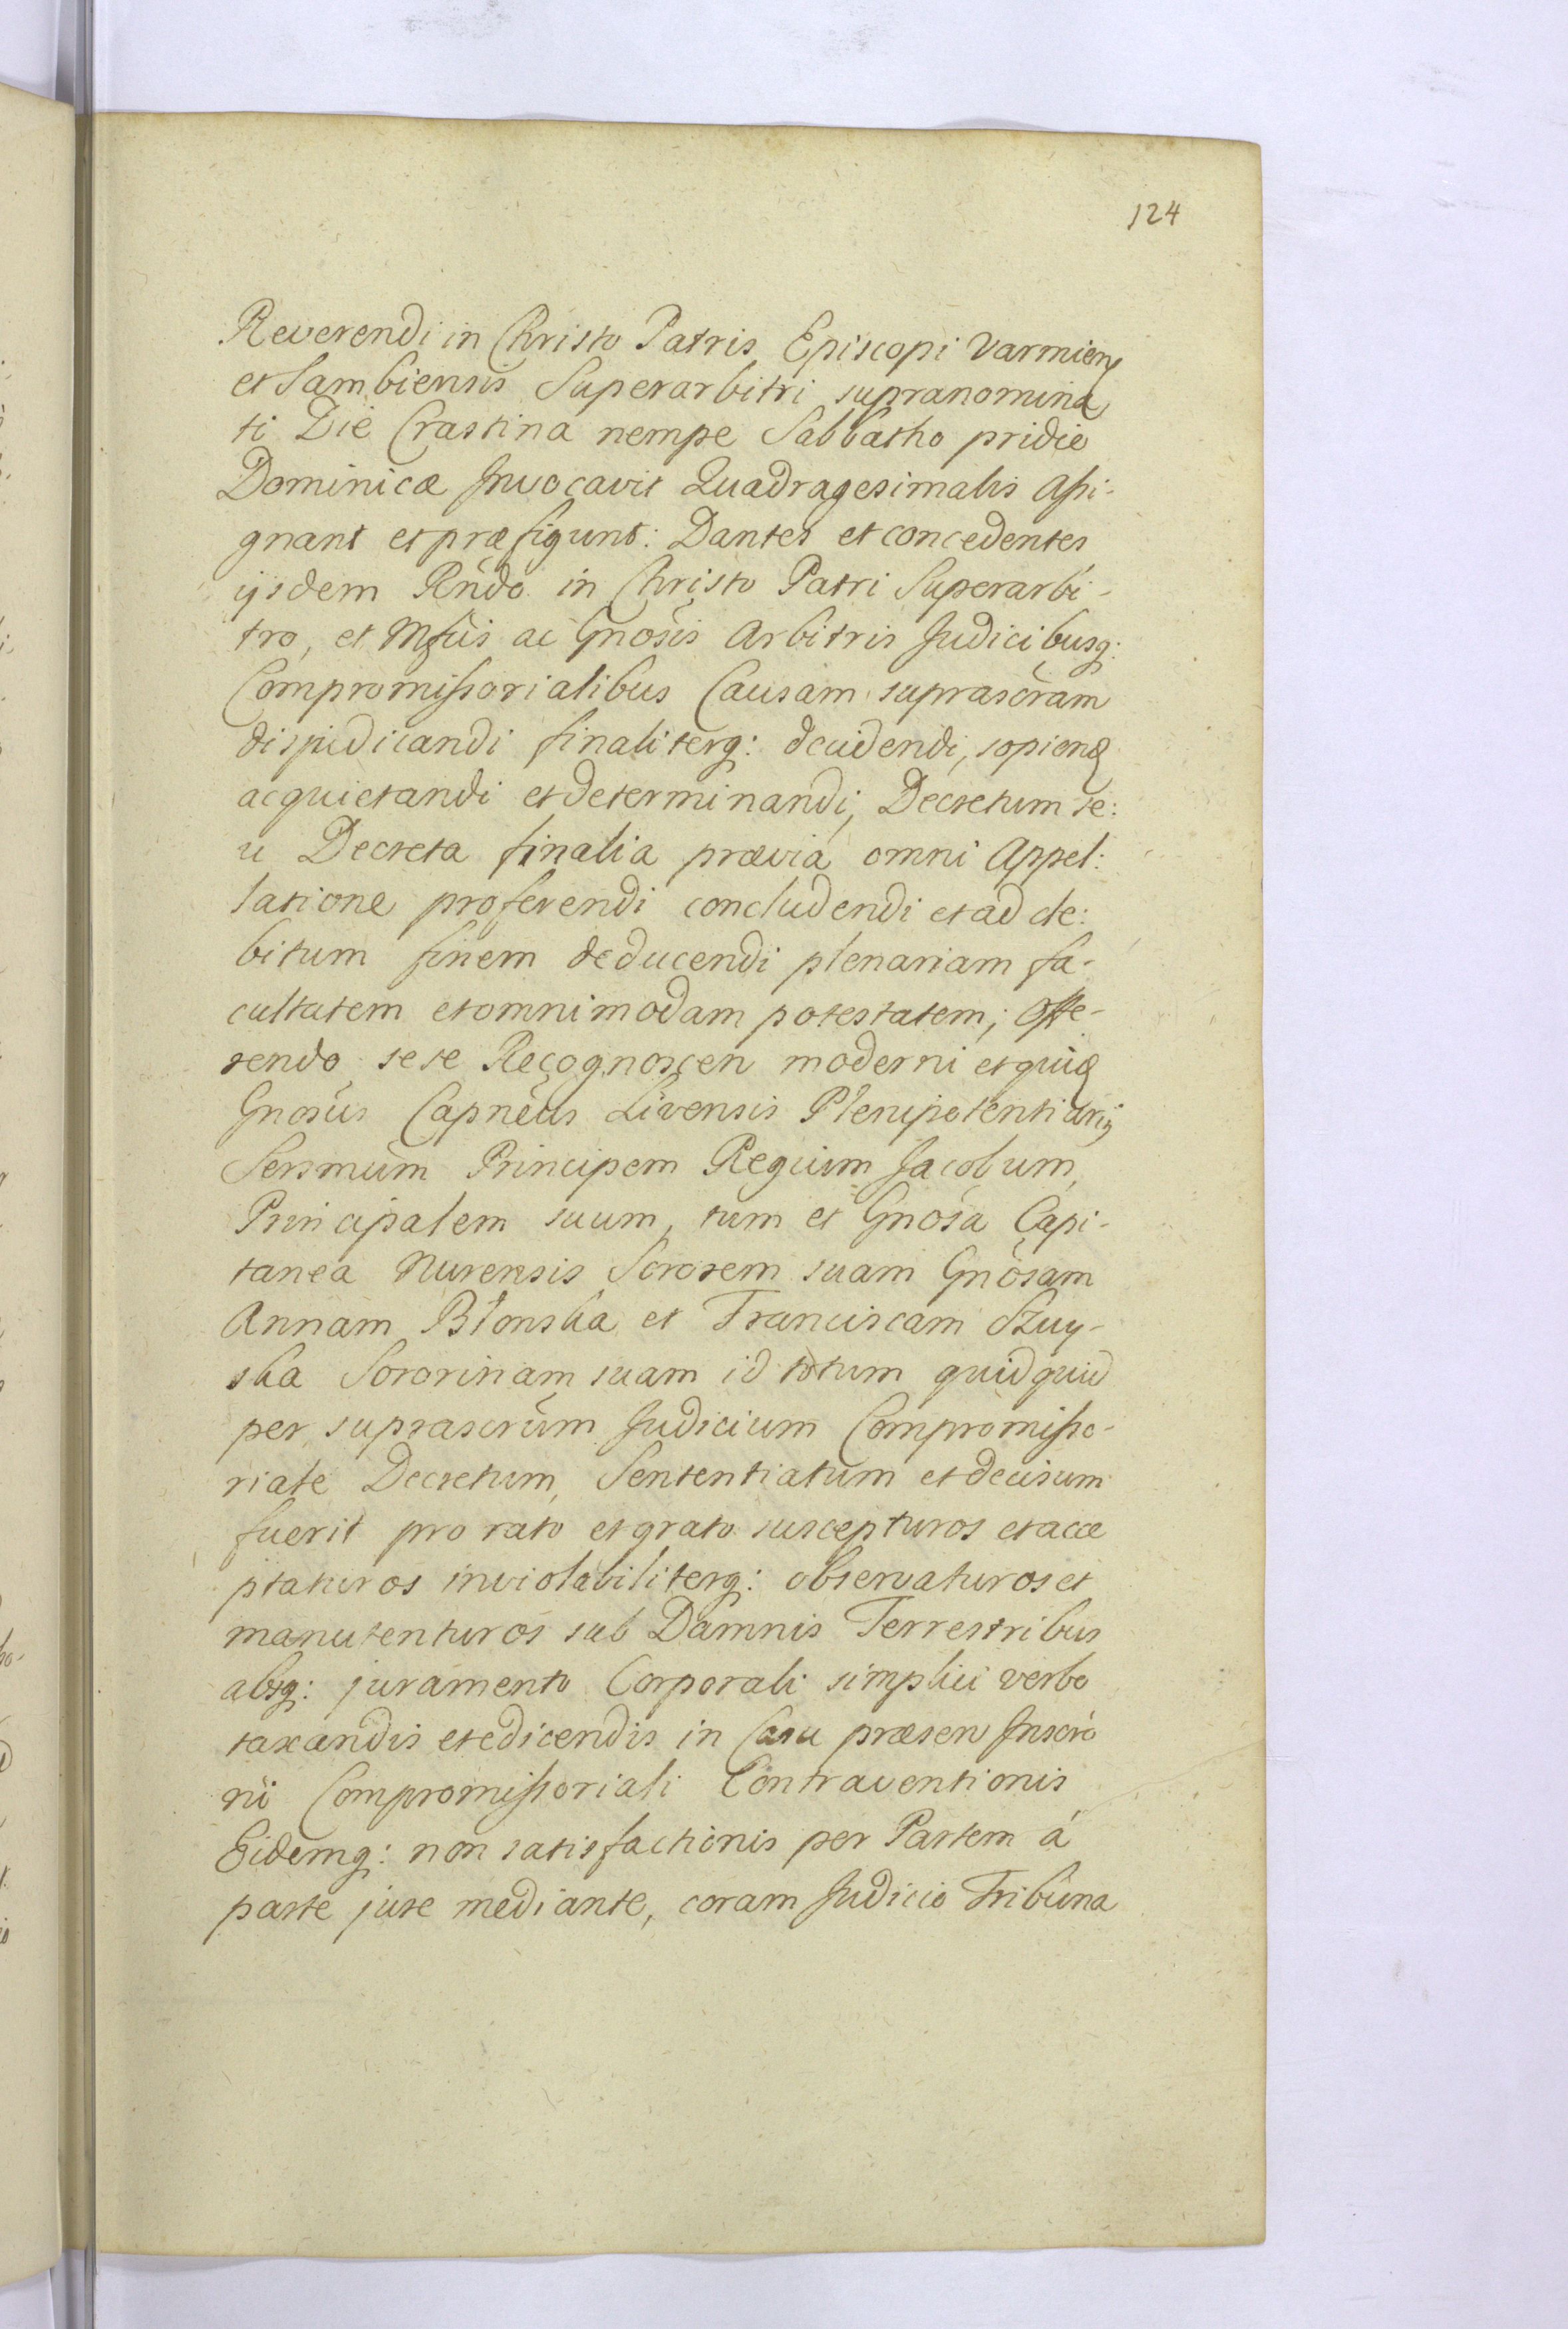 124
Reverendi in Christo Patris Episcopi Varmien
et Sambiensis Superarbitri supranomina
ti Die Crastina nempe Sabbatho pridie
Dominicæ Invocavit Quadragesimalis Assi-
gnant et præfigunt: Dantes et concedentes
ijsdem Rñdo in Christo Patri Superarbi-
tro, et Mfcis ac Gnosis Arbitris Judicibusq:
Compromissorialibus Causam suprascram
disjudicandi finaliterq: decidendi, sopiend
acquietandi et determinandi, Decretum se:
u Decreta finalia prævia omni Appel:
latione proferendi concludendi et ad de:
bitum finem deducendi plenariam fa-
cultatem et omnimodam potestatem; Offe-
rendo sese Recognoscen moderni et quid
Gnosus Capneus Livensis Plenipotentiarij
Sersmum Principem Regium Jacobum,
Principalem suum, tum et Gnosa Capi-
tanea Nurensis Sororem suam Gnosam
Annam Błonska et Franciscam Szuy-
ska Sororinam suam id totum quidquid
per suprascrum Judicium Compromisso-
riale Decretum, Sententiatum et decisum
fuerit pro rato et grato suscepturos et acce
ptaturos inviolabiliterq: observaturos et
manutenturos sub Damnis Terrestribus
absq: juramento Corporali simplici verbo
taxandis et edicendis in Casu præsen Inscrò
ni Compromissoriali Contraventionis
Eidemq: non satisfactionis per Partem á
parte jure mediante, coram Judicio Tribuna